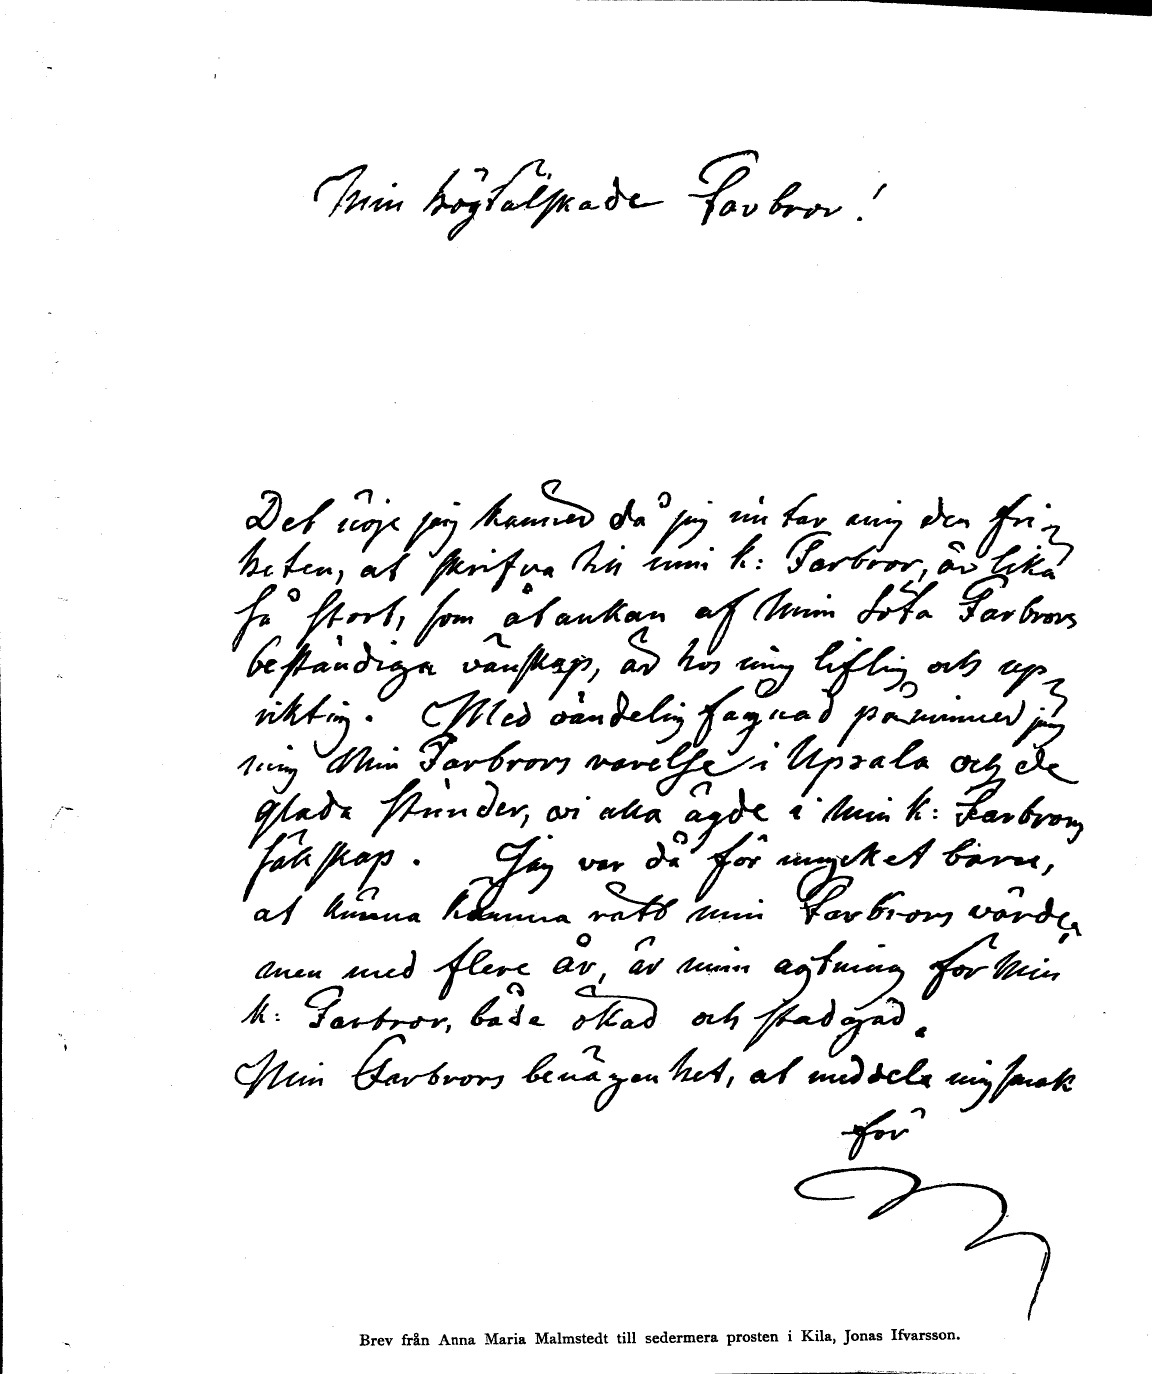 Min högtälskade Farbror!
Det nöje jag känner då jag nu tar mig den fri-
heten, at skrifva till min k: Farbror, är lika
så stort, som åtankan af Min söta Farbrors
beständiga vänskap, är hos mig liflig och up-
riktig. Med oändelig fägnad påminner jag
mig Min Farbrors varelse i Upsala och de
glada stunder, vi alla ägde i Min k: Farbrors
sälskap. Jag var då för mycket barn,
at kunna känna rätt min Farbrors värde,
men med flere år, är min agtning för Min
k: Farbror, både ökad och stadgad.
Min Farbrors benägenhet, at meddela mig smak
för
Brev från Anna Maria Malmstedt till sedermera prosten i Kila, Jonas Ifvarsson.